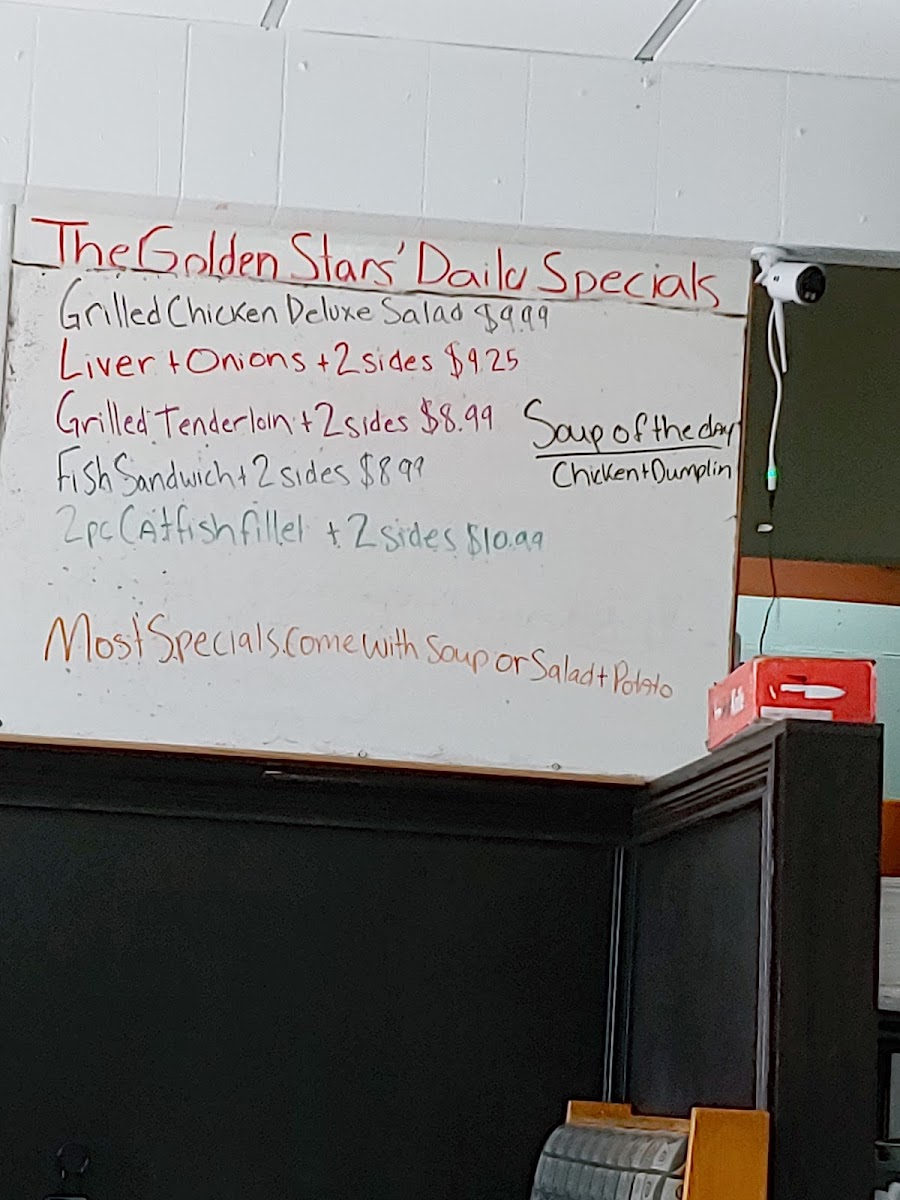 The Golden Stars' Daily Specials
Grilled Chicken Deluxe Salad $9.99
Liver + Onions + 2 sides $9.25
Grilled Tenderloin + 2 sides $8.99
Fish Sandwich + 2 sides $8.99
2pc Catfish fillet + 2 sides $10.99
Soup of the day
Chicken + Dumplin
Most Specials Come with Soup or Salad + Potato